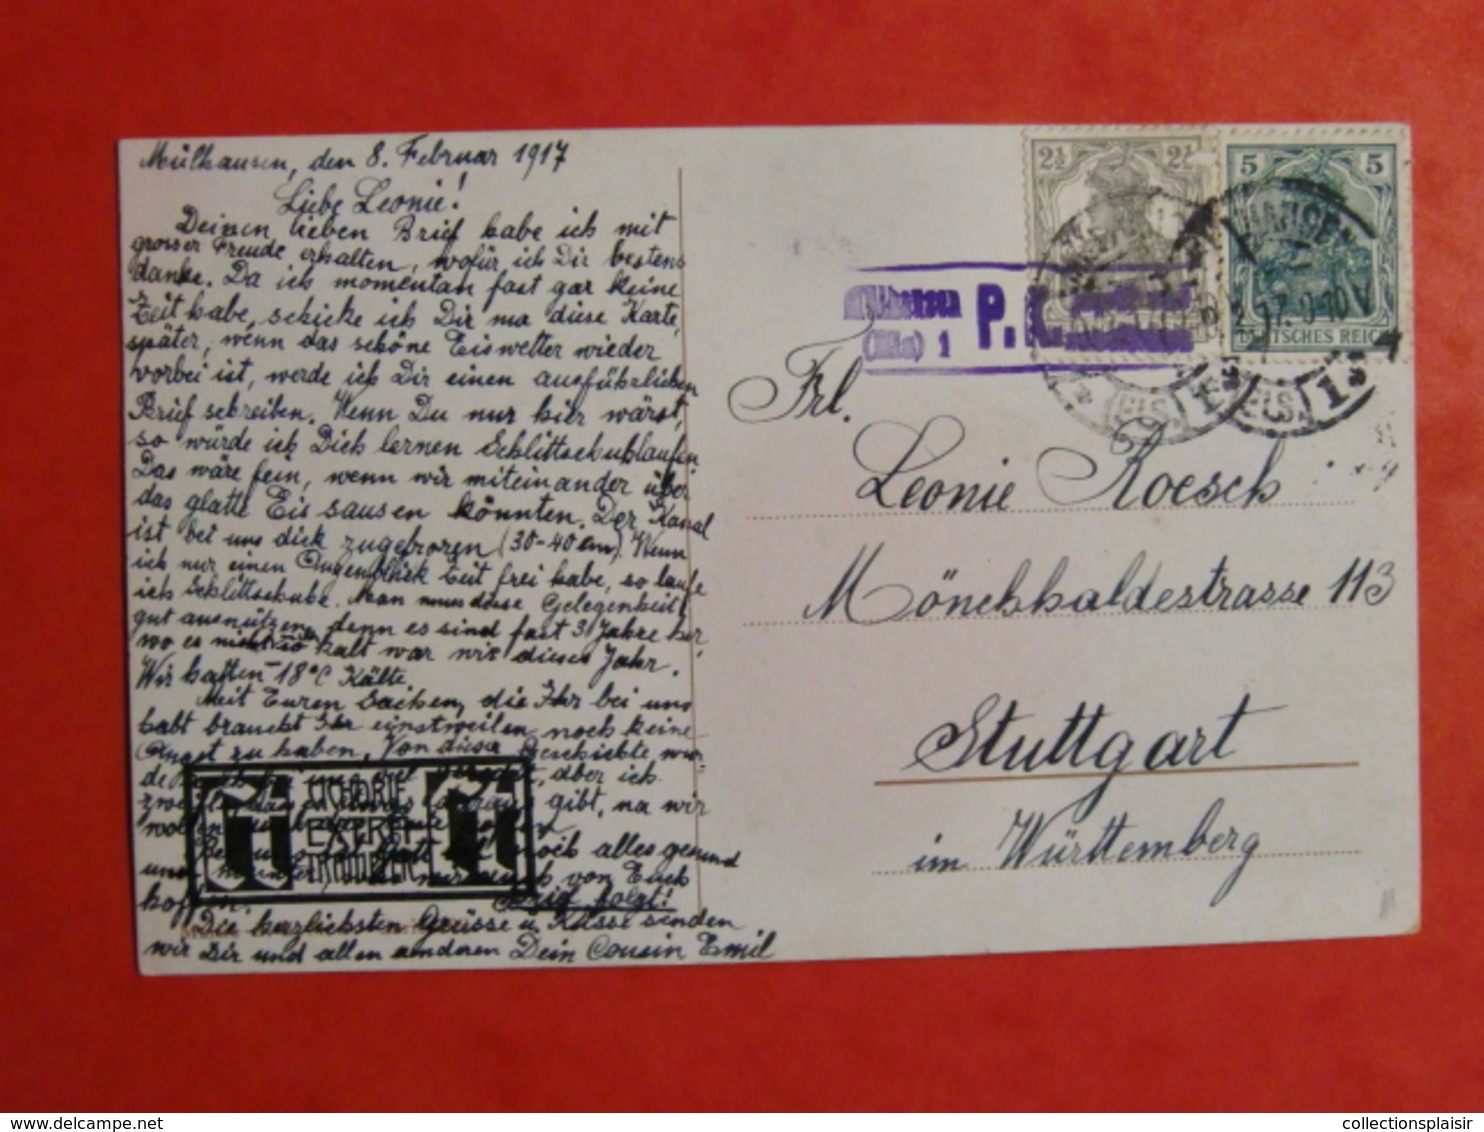 Mülhausen, den 8. Februar 1917
Liebe Leonie!
Deinen lieben Brief habe ich mit
grosser Freude erhalten, wofür ich Dir bestens
danke. Da ich momentan fast gar keine
Zeit habe, schicke ich Dir ma diese Karte,
später, wenn das schöne Eiswetter wieder
vorbei ist, werde ich Dir einen ausführlichen
Brief schreiben. Wenn Du nur hier wärst,
so würde ich Dich lernen Schlittschuhlaufen
Das wäre fein, wenn wir miteinander über
das glatte Eis sausen könnten. Der Kanal
ist bei uns dick zugefroren (30-40 cm). Wenn
ich nur einen Augenblick Zeit frei habe, so laufe
ich Schlittschuhe. Man muss diese Gelegenheit
gut ausnützen, denn es sind fast 3 Jahre her,
wo es nicht so kalt war wie dieses Jahr.
Wir hatten -18°C Kälte.
Mit Euren Sachen, die Ihr bei uns
habt braucht Ihr einstweilen noch keine
Angst zu haben. Von dieser Geschichte wur-
de bei uns viel geredet, aber ich
gibt, na wir
noch alles gesund
und munter, was wir auch von Euch
hoffen. Brief folgt!
Die herzlichsten Grüsse u. Küsse senden
wir Dir und allen anderen Dein Cousin Emil
TI CICHORIE
EXTRA
TRAMPLER TI
2½ 2½
5 5
DEUTSCHES REICH
Mülhausen
(Els.) 1
P. K.
Frl.
Leonie Roesch
Mönchhaldestrasse 113
Stuttgart
im Württemberg
collectionsplaisir